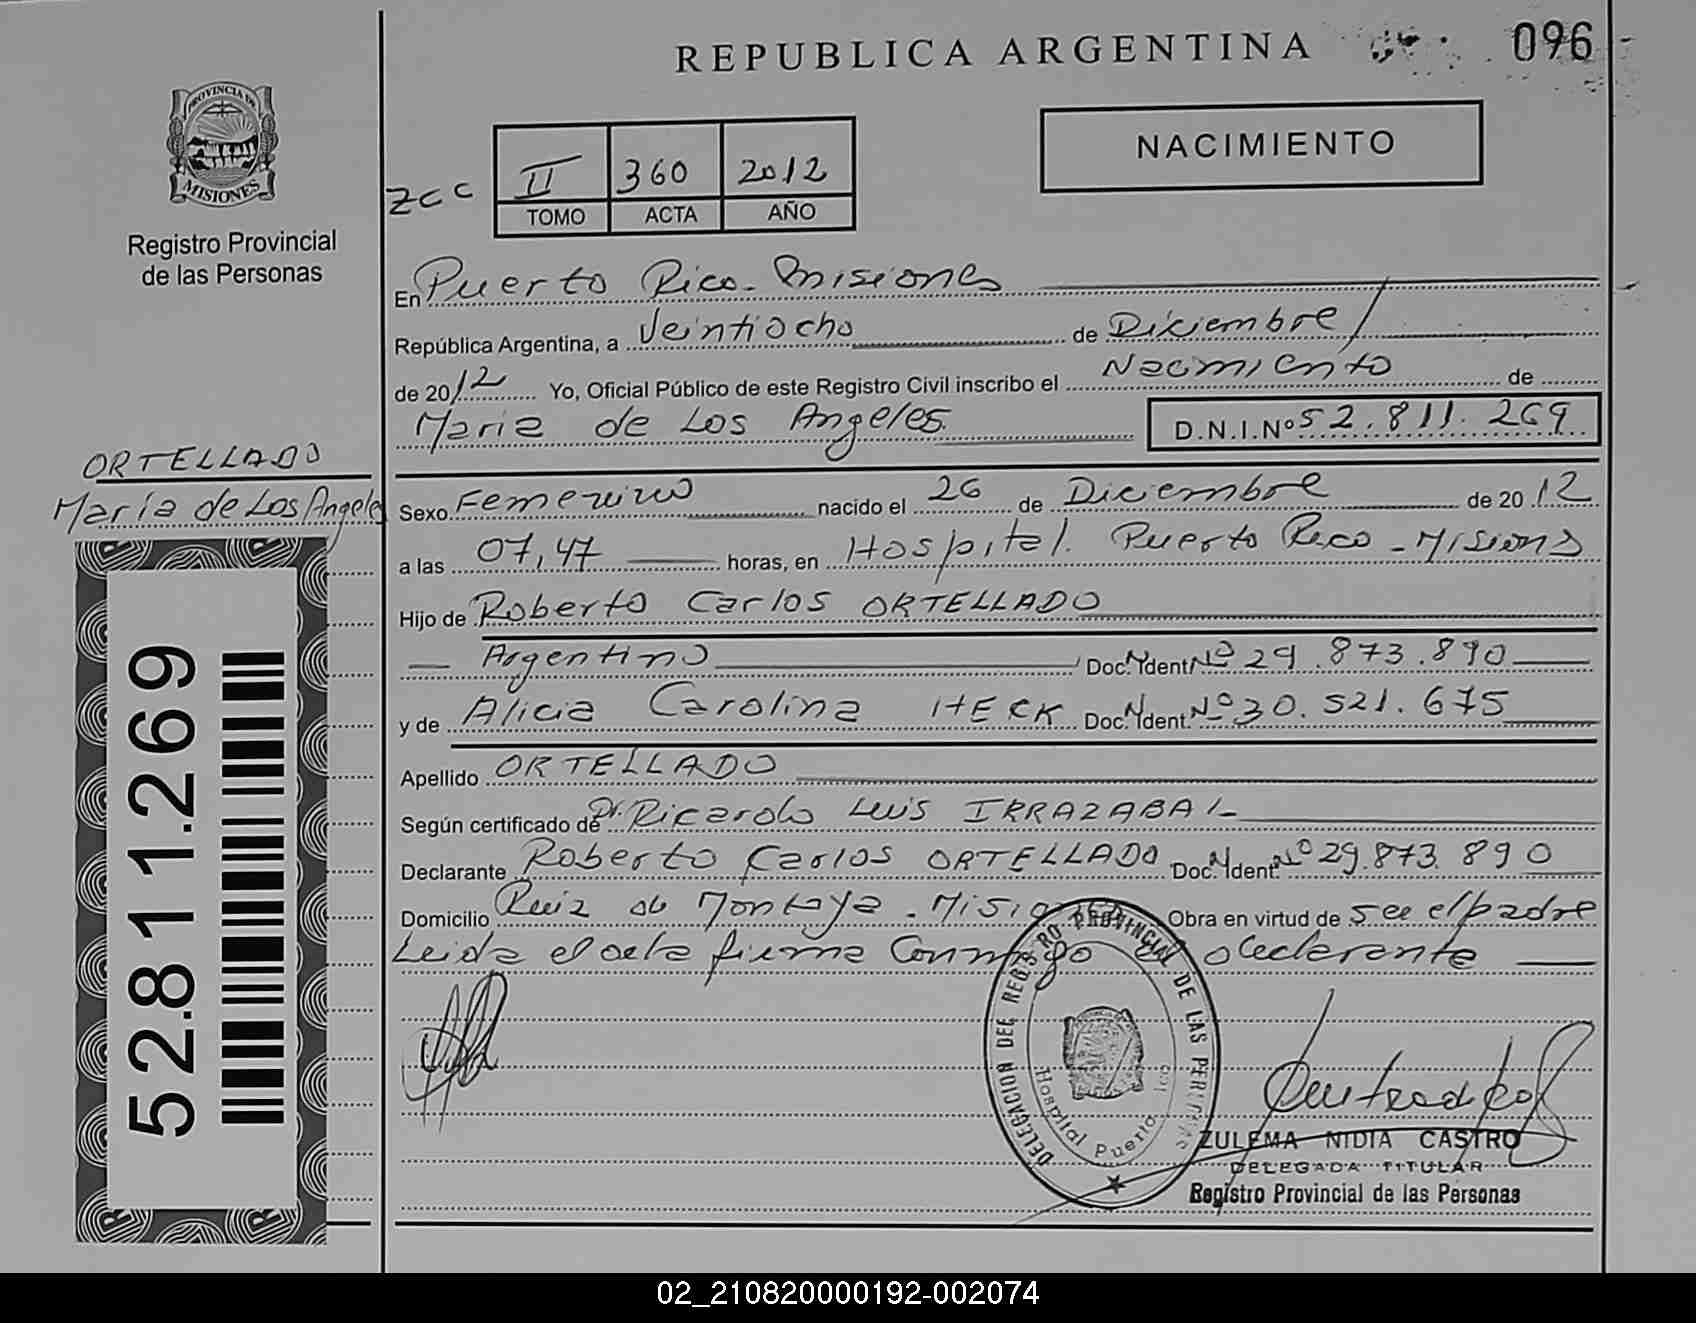 REPUBLICA ARGENTINA
096
PROVINCIA DE
MISIONES
Registro Provincial
de las Personas
NACIMIENTO
zcc
II 360 2012
TOMO ACTA AÑO
En Puerto Rico - Misiones
República Argentina, a Veintiocho de Diciembre
de 2012 Yo, Oficial Público de este Registro Civil inscribo el Nacimiento de
Maria de Los Angeles D.N.I.Nº 52.811.269
ORTELLADO
María de Los Angeles
Sexo Femenino nacido el 26 de Diciembre de 2012
a las 07,47 horas, en Hospital. Puerto Rico - Misiones
Hijo de Roberto Carlos ORTELLADO
Argentino Doc. Ident. Nº 29.873.890
y de Alicia Carolina HECK Doc. Ident. Nº 30.521.675
Apellido ORTELLADO
Según certificado de Dr. Ricardo Luis IRRAZABAL
Declarante Roberto Carlos ORTELLADO Doc. Ident. Nº 29.873.890
Domicilio Ruiz de Montoya - Misiones Obra en virtud de ser el padre
Leida el acta firma Conmigo el declarante
52.811.269
DELEGACION DEL REGISTRO PROVINCIAL DE LAS PERSONAS
Hospital Puerto
ZULEMA NIDIA CASTRO
DELEGADA TITULAR
Registro Provincial de las Personas
02_210820000192-002074